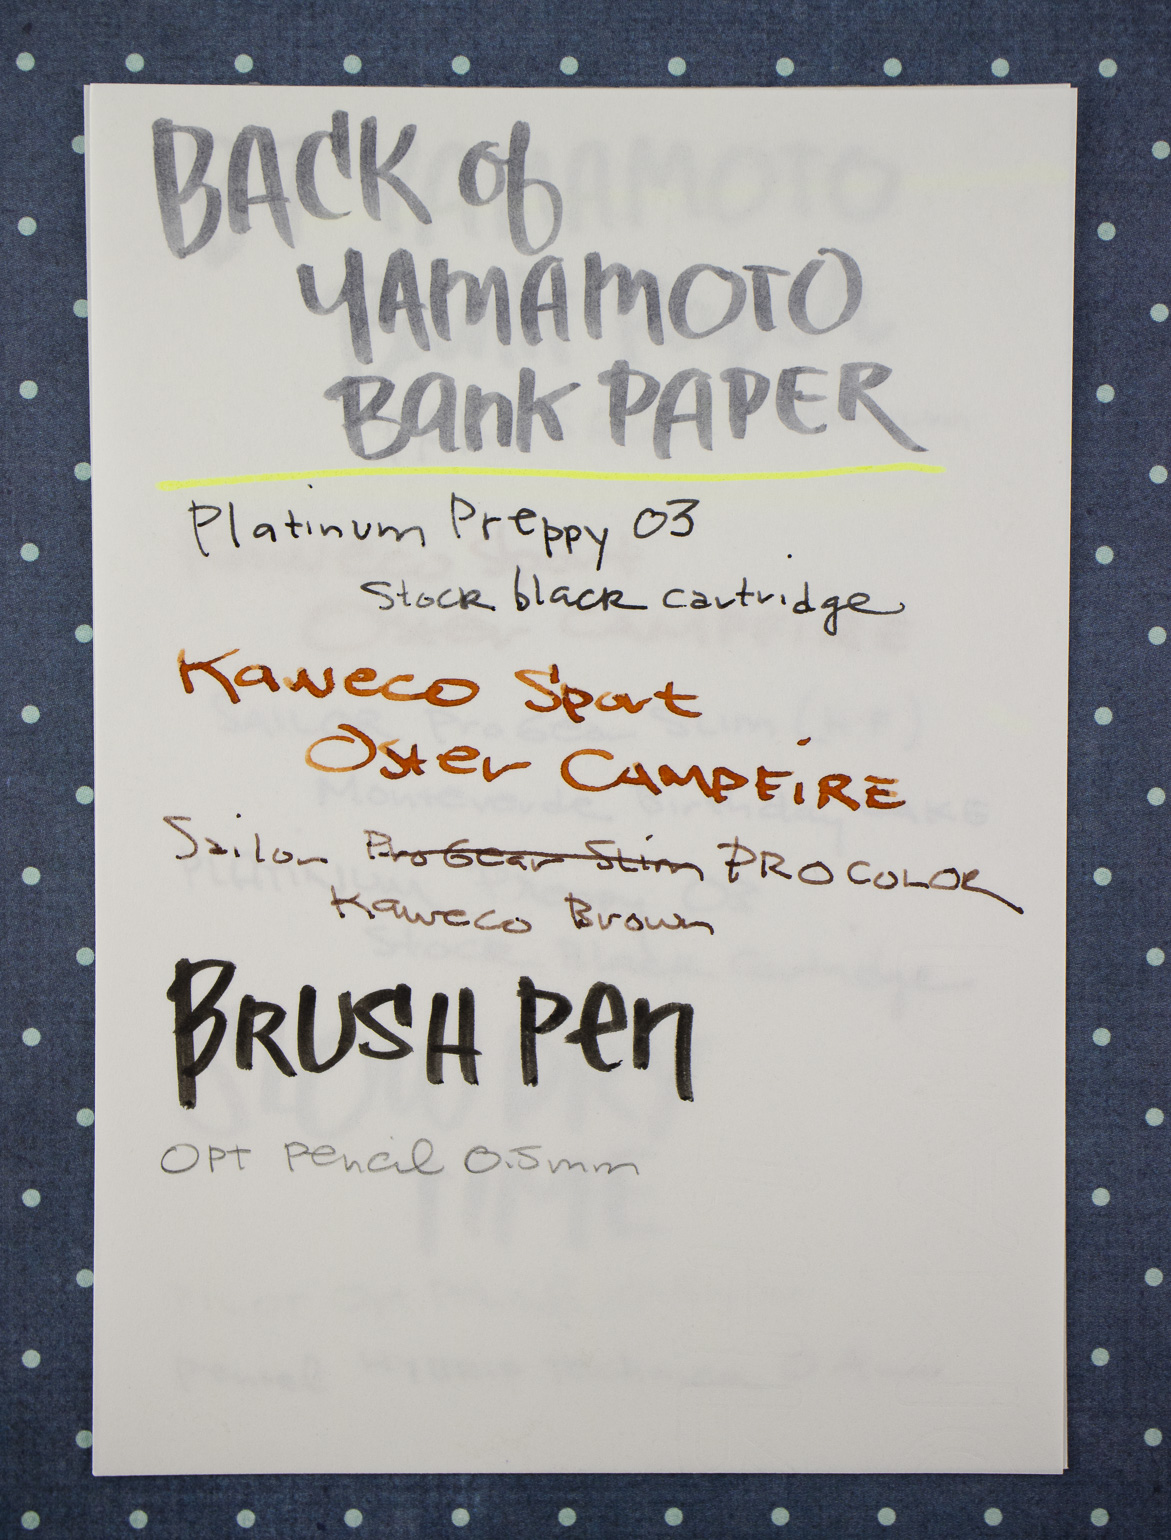 BACK of
YAMAMOTO
Bank PAPER
Platinum Preppy 03
Stock black cartridge
Kaweco Sport
Oster CAMPFIRE
Sailor ProGear Slim PROCOLOR
Kaweco Brown
BRUSH Pen
OPT Pencil 0.5mm